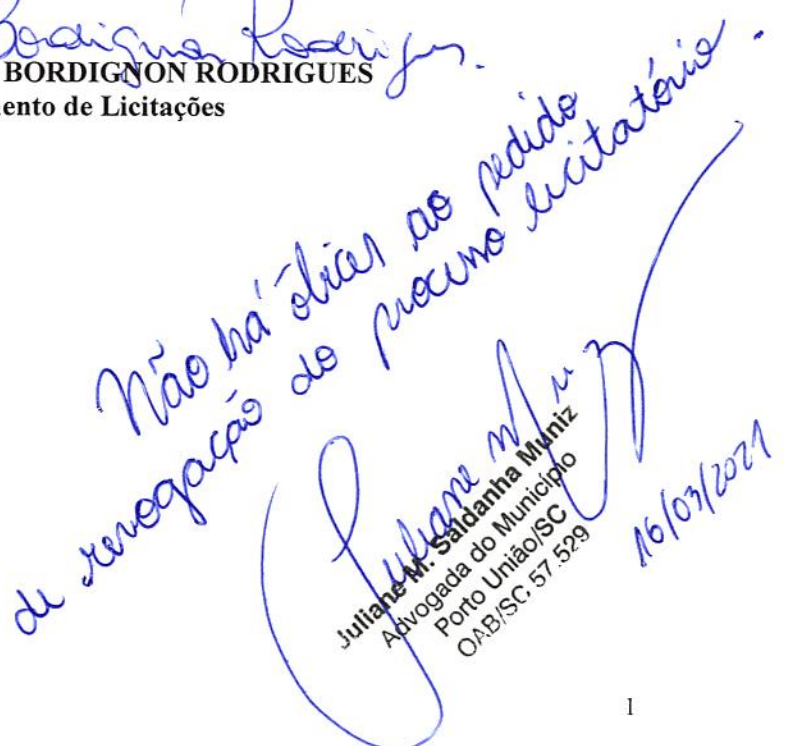 Bordignon Rodrigues.
BORDIGNON RODRIGUES
ento de Licitações
Não há óbices ao pedido
de revogação do processo licitatório.
Juliane Muniz
Juliane M. Saldanha Muniz
Advogada do Município
Porto União/SC
OAB/SC 57.529
16/03/2021
1